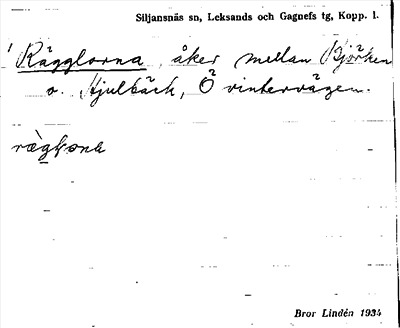 Siljansnäs sn, Leksands och Gagnefs tg, Kopp. l.
Rägglorna, åker mellan Björken
o. Hjulbäck, Ö vintervägen.
Bror Lindén 1934